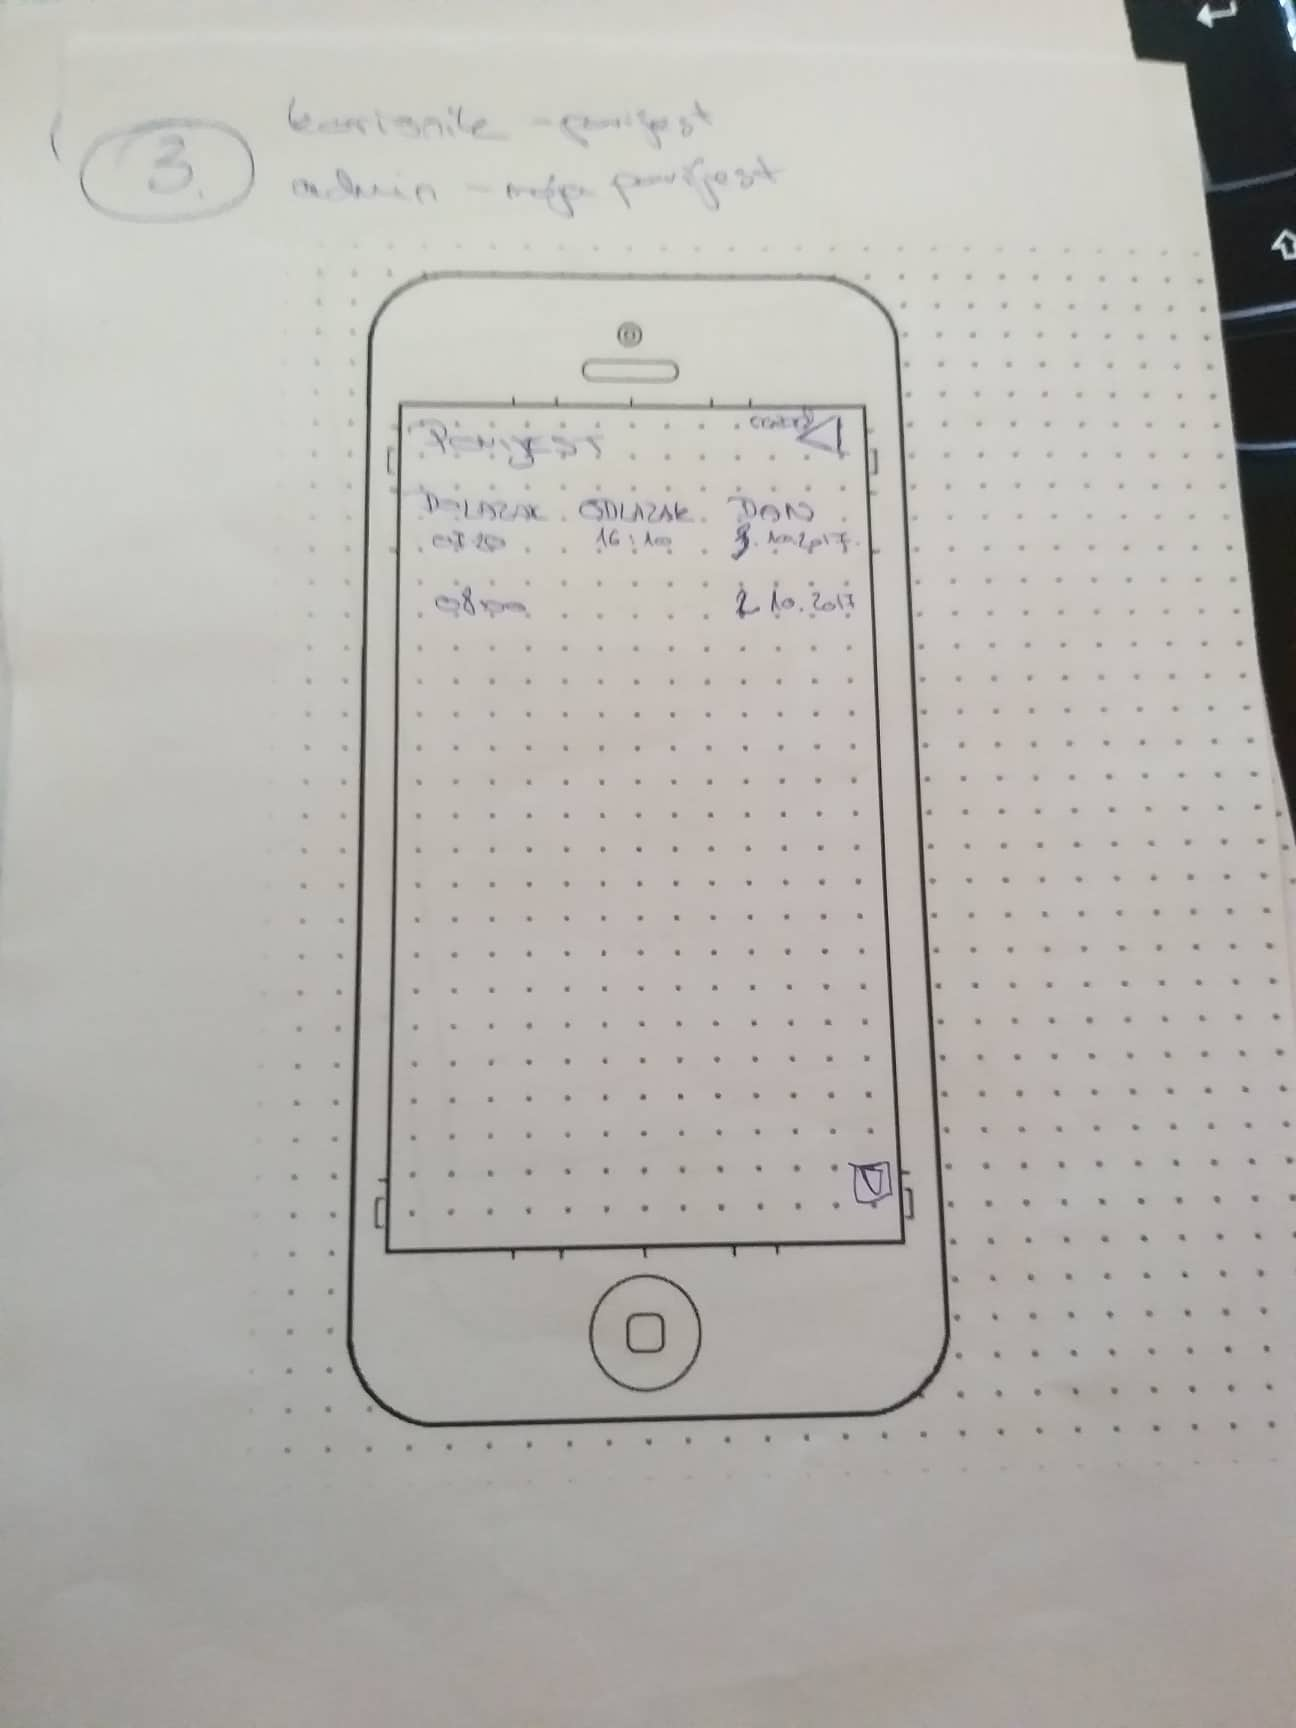 3.
korisnik - povijest
admin - moja povijest
POVIJEST
DOLAZAK ODLAZAK DAN
07:20 16:10 3.10.2017.
08:00 2.10.2017